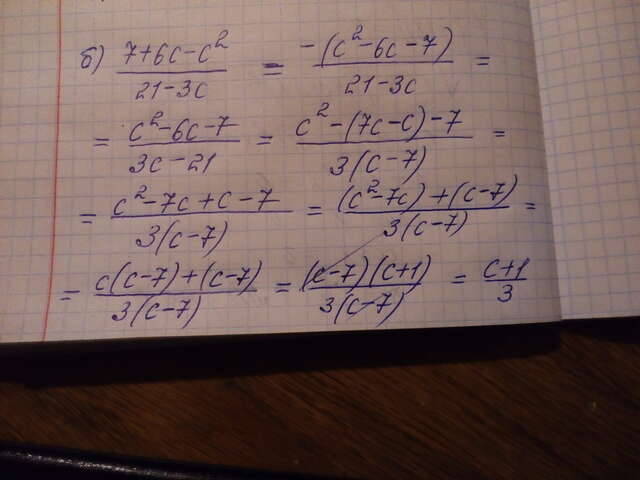 б) (7+6c-c²)/(21-3c) = (-(c²-6c-7))/(21-3c) =
= (c²-6c-7)/(3c-21) = (c²-(7c-c)-7)/(3(c-7)) =
= (c²-7c+c-7)/(3(c-7)) = ((c²-7c)+(c-7))/(3(c-7)) =
= (c(c-7)+(c-7))/(3(c-7)) = ((c-7)(c+1))/(3(c-7)) = (c+1)/3